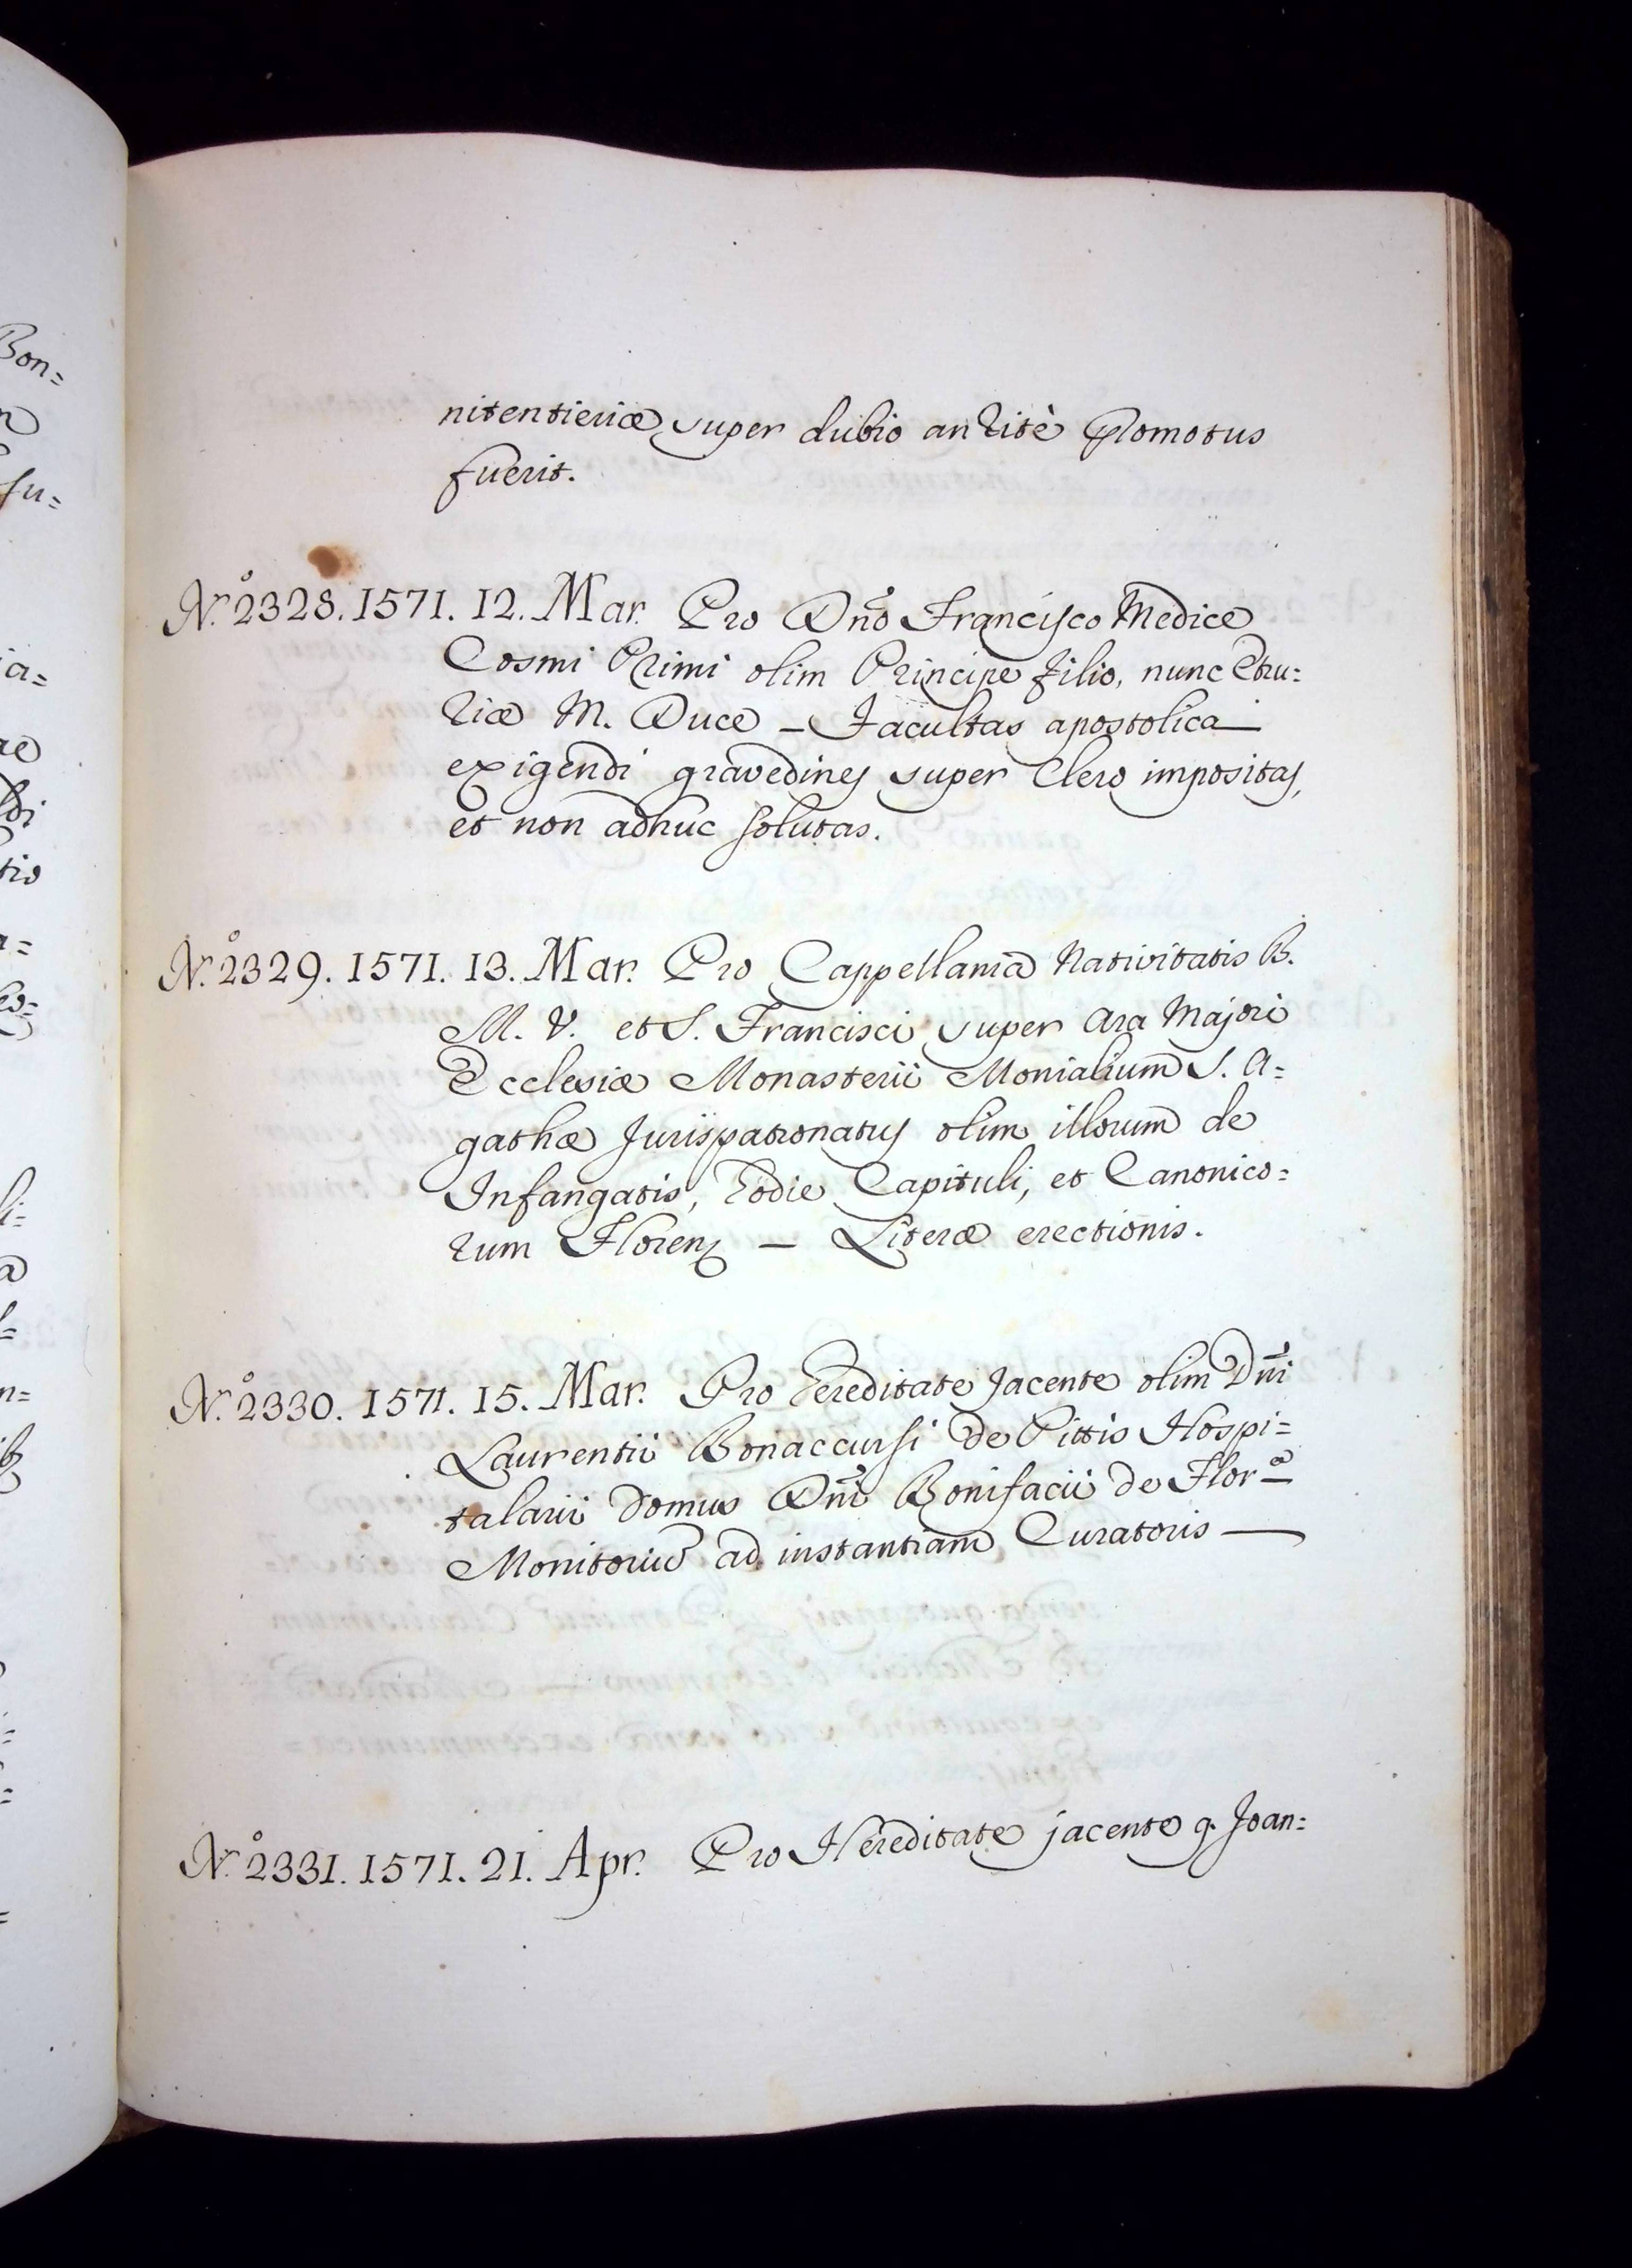 nitentieriæ super dubio an ritè promotus
fuerit.
N.º 2328. 1571. 12. Mar. Pro Dnõ Francisco Medice
Cosmi Primi olim Principe filio, nunc Etru=
riæ M. Duce — Facultas apostolica
exigendi gravedines super Clero impositas,
et non adhuc solutas.
N.º 2329. 1571. 13. Mar. Pro Cappellania Nativitatis B.
M. V. et S. Francisci super Ara Majori
Ecclesiæ Monasterii Monialium S. A=
gathæ Jurispatronatus olim illorum de
Infangatis, hodie Capituli, et Canonico=
rum Florenz — Literæ erectionis.
N.º 2330. 1571. 15. Mar. Pro hereditate Jacente olim Dñi
Laurentii Bonaccursi de Pittis Hospi=
talarii Domus Dñi Bonifacii de Flor.ª
Monitoriũ ad instantiam Curatoris —
N.º 2331. 1571. 21. Apr. Pro Hereditate jacente q. Joan=
Bon=
su=
ia=
tio
li=
n=